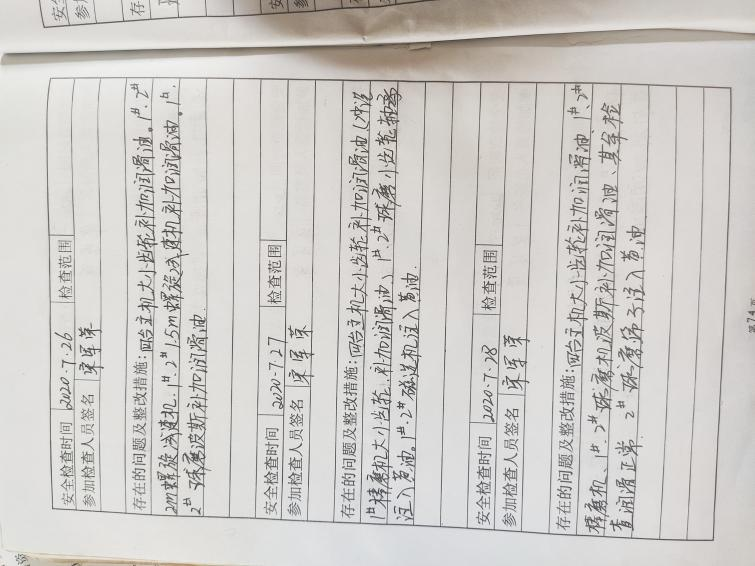 安全检查时间 2020.7.26 检查范围
参加检查人员签名 宋军荣
存在的问题及整改措施:四台主机大小齿轮补加润滑油。1#.2#
2m螺旋减速机.1#.2#1.5m螺旋减速机补加润滑油。1#.
2#球磨波斯补加润滑油.
安全检查时间 2020.7.27 检查范围
参加检查人员签名 宋军荣
存在的问题及整改措施:四台主机大小齿轮补加润滑油
1#棒磨机大小齿轮补加润滑油、1#.2#球磨小齿轮轴承
注入黄油。1#.2#磁选机注入黄油.
安全检查时间 2020.7.28 检查范围
参加检查人员签名 宋军荣
存在的问题及整改措施:四台主机大小齿轮补加润滑油、1#、2#
棒磨机、1#.2#球磨机波斯补加润滑油、其余检
查润滑正常.2#球磨筛子注入黄油
第74页